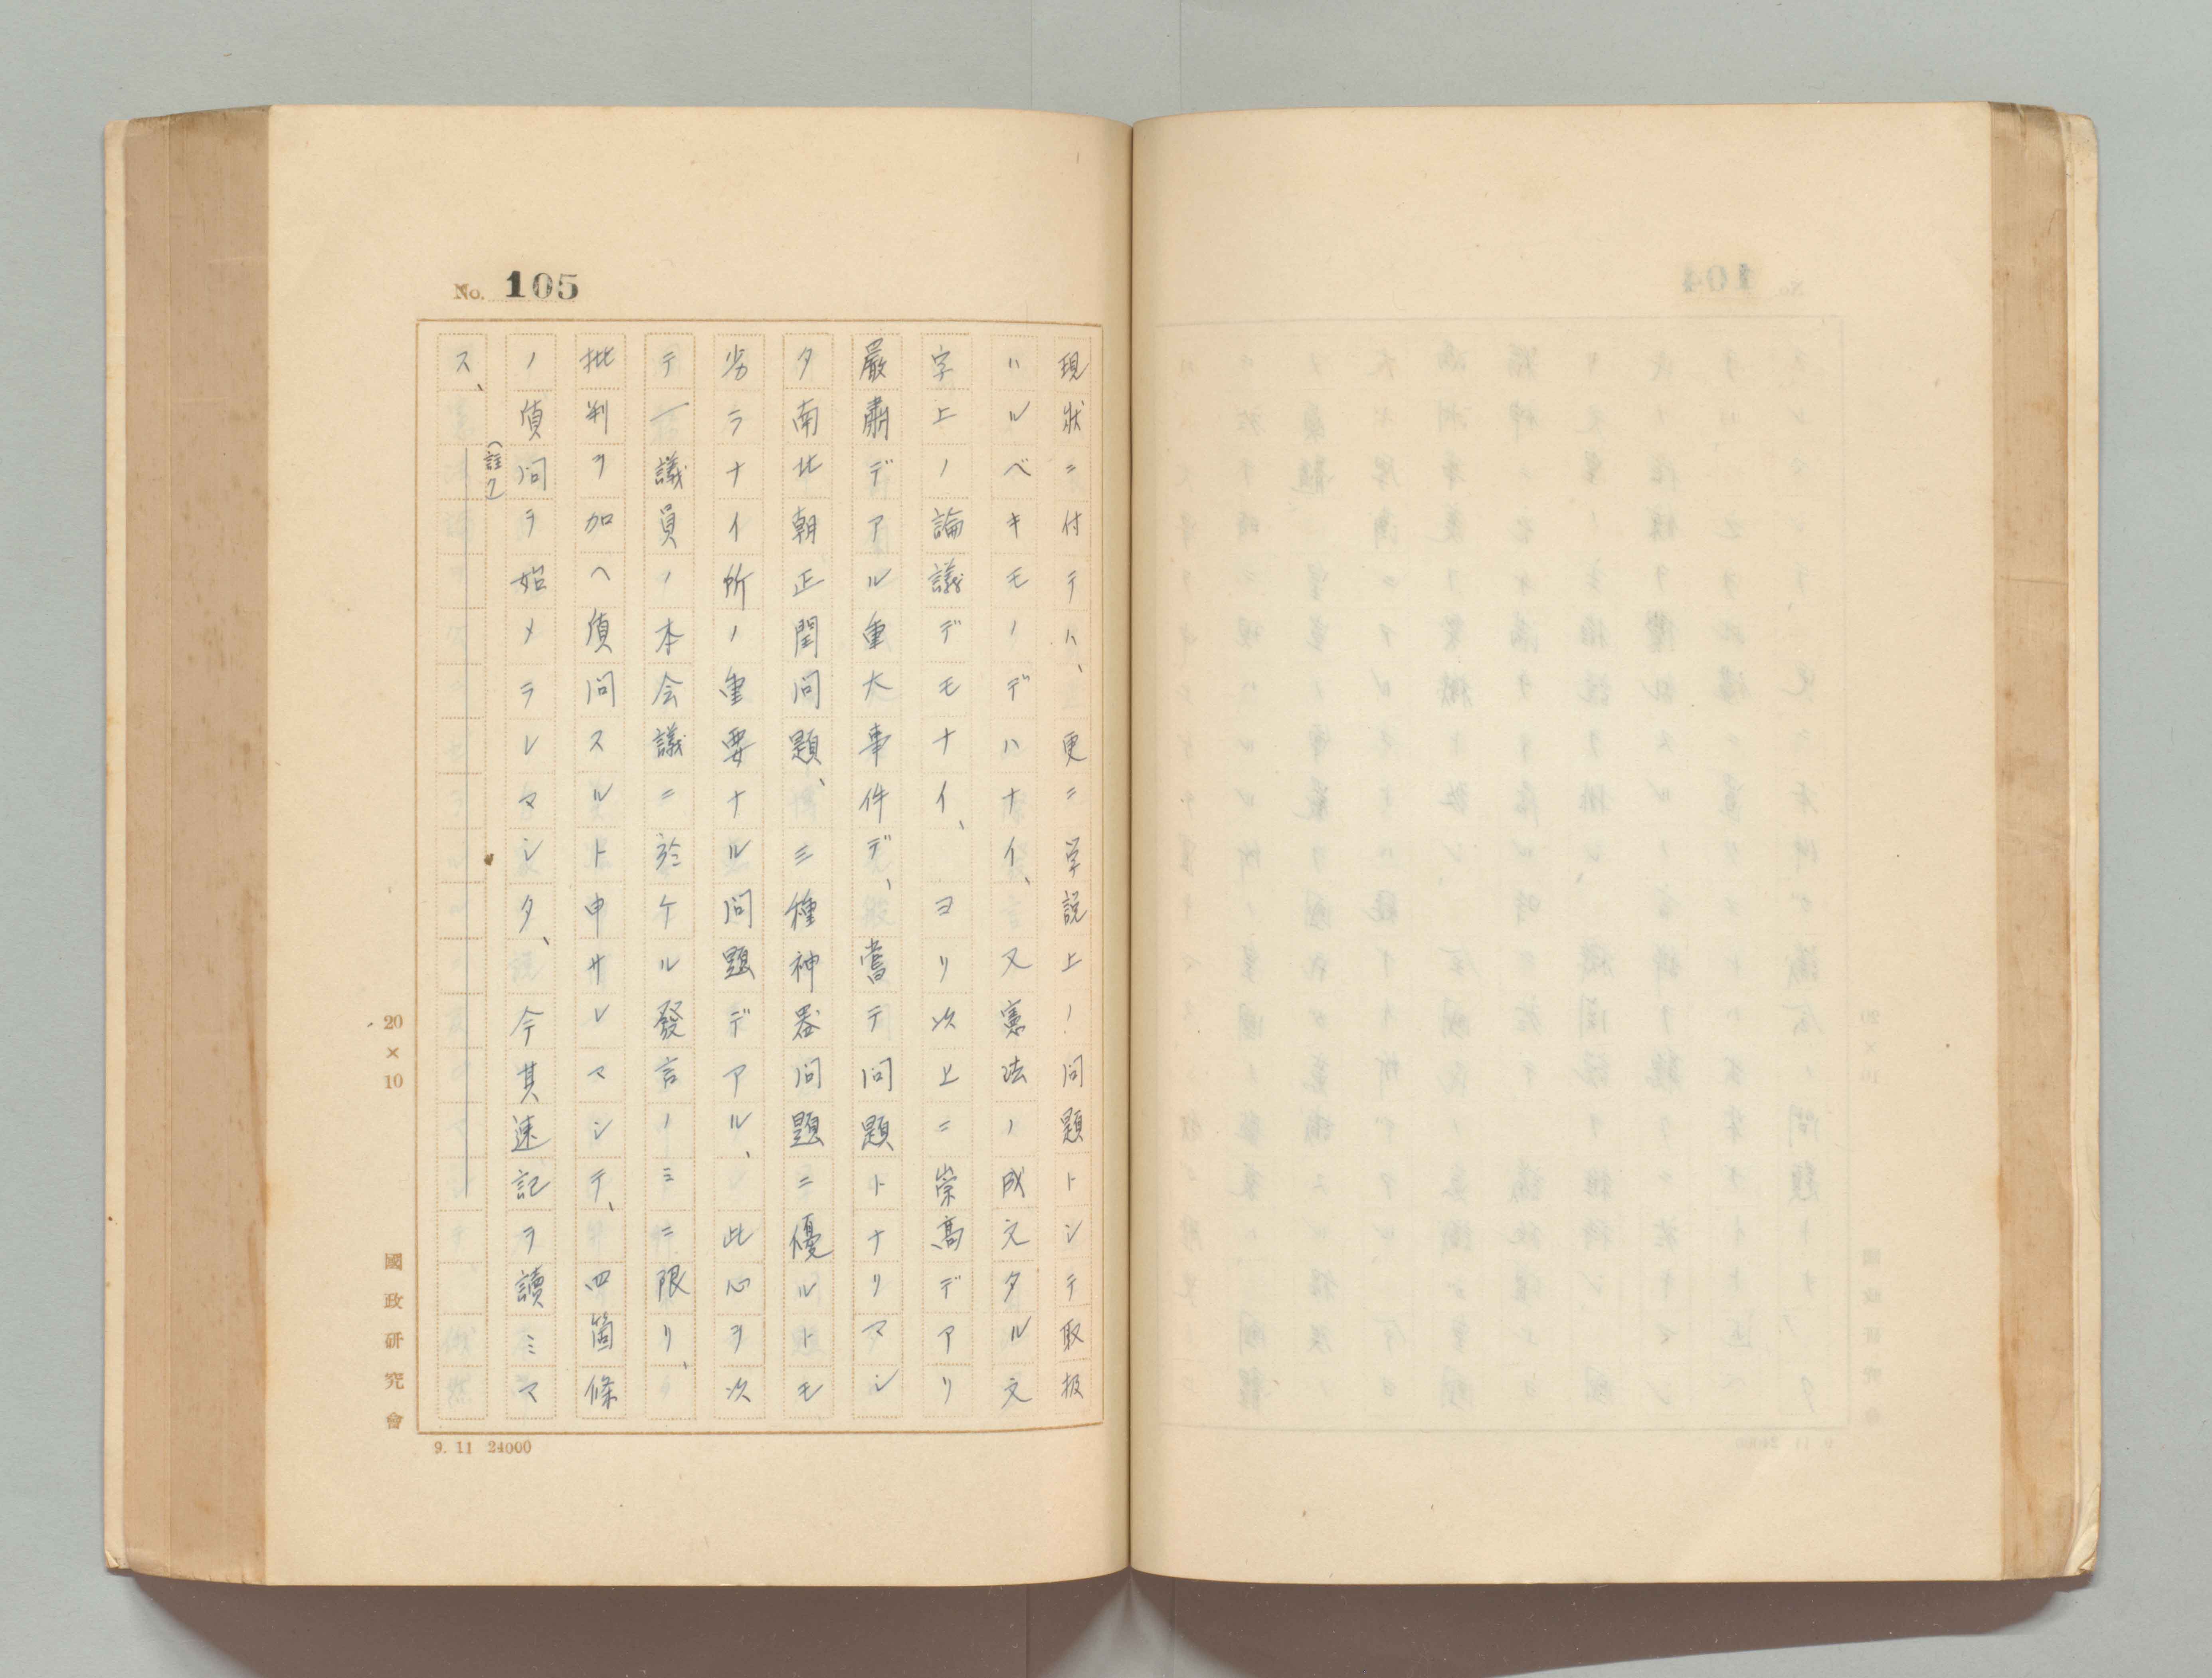 No. 105
現狀ニ付テハ、更ニ学説上ノ問題トシテ取扱
ハルベキモノデハナイ、又憲法ノ成文タル文
字上ノ論議デモナイ、ヨリ以上ニ崇高デアリ
嚴肅デアル重大事件デ、嘗テ問題トナリマシ
タ南北朝正閏問題、三種神器問題ニ優ルトモ
劣ラナイ所ノ重要ナル問題デアル、此心ヲ以
テ一議員ノ本会議ニ於ケル發言ノミニ限リ、
批判ヲ加ヘ質問スルト申サレマシテ、四箇條
ノ質問ヲ始メラレマシタ、今其速記ヲ讀ミマ
ス、
(註
20×10
國政研究會
9. 11 24000